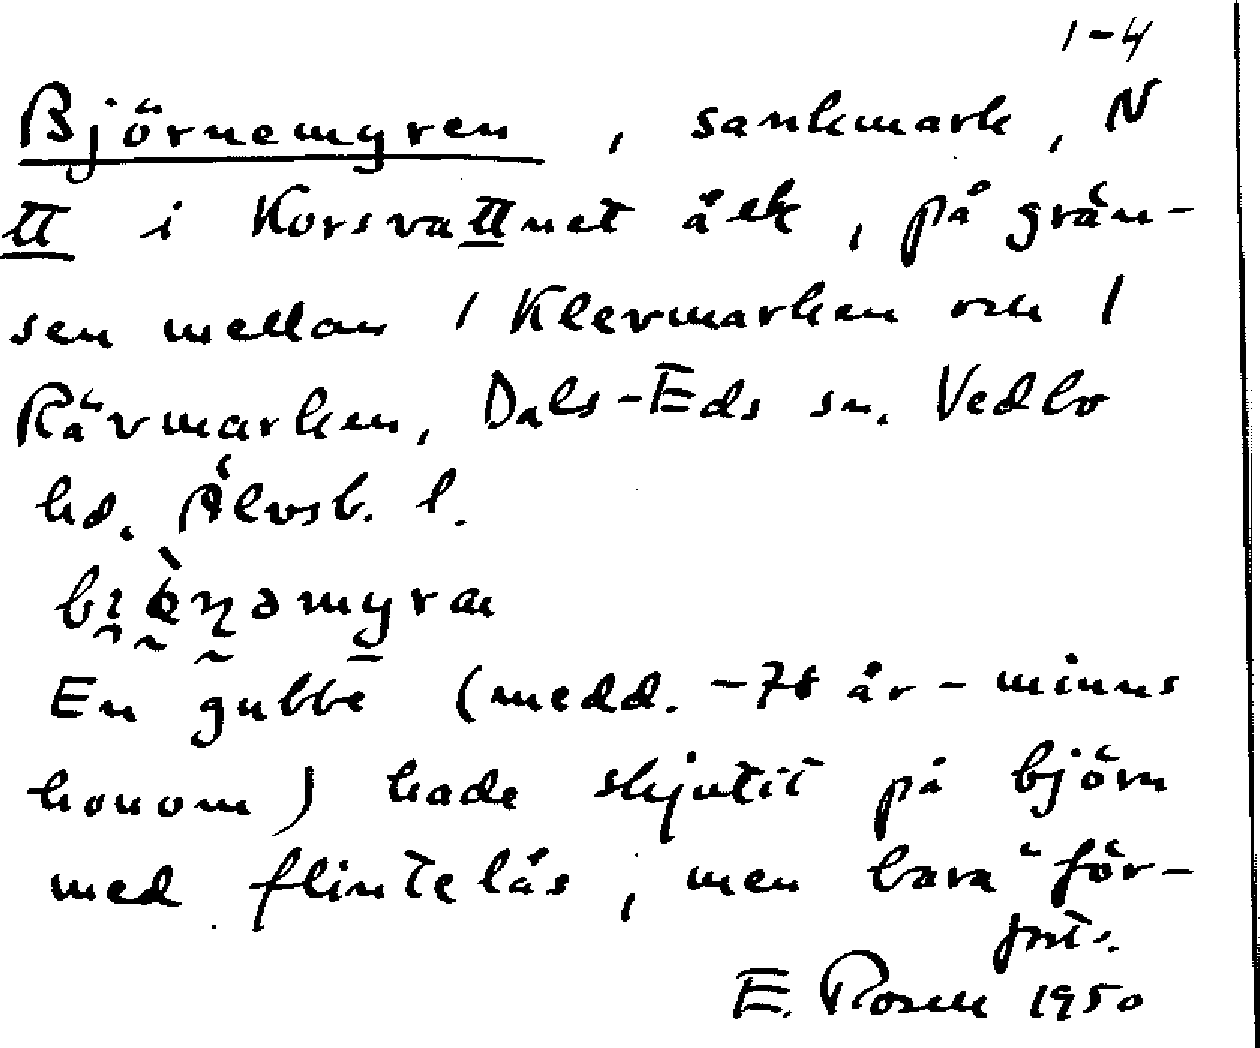 1-4
Björnemyren, sankmark, N
tt i Korsvattnet å ek, på grän-
sen mellan 1 Klevmarken och 1
Rävmarken, Dals-Eds sn. Vedbo
hd. Älvsb. l.
En gubbe (medd. -78 år - minns
honom) hade skjutit på björn
med flintelås, men bara "för-
forts.
E. Rosell 1950